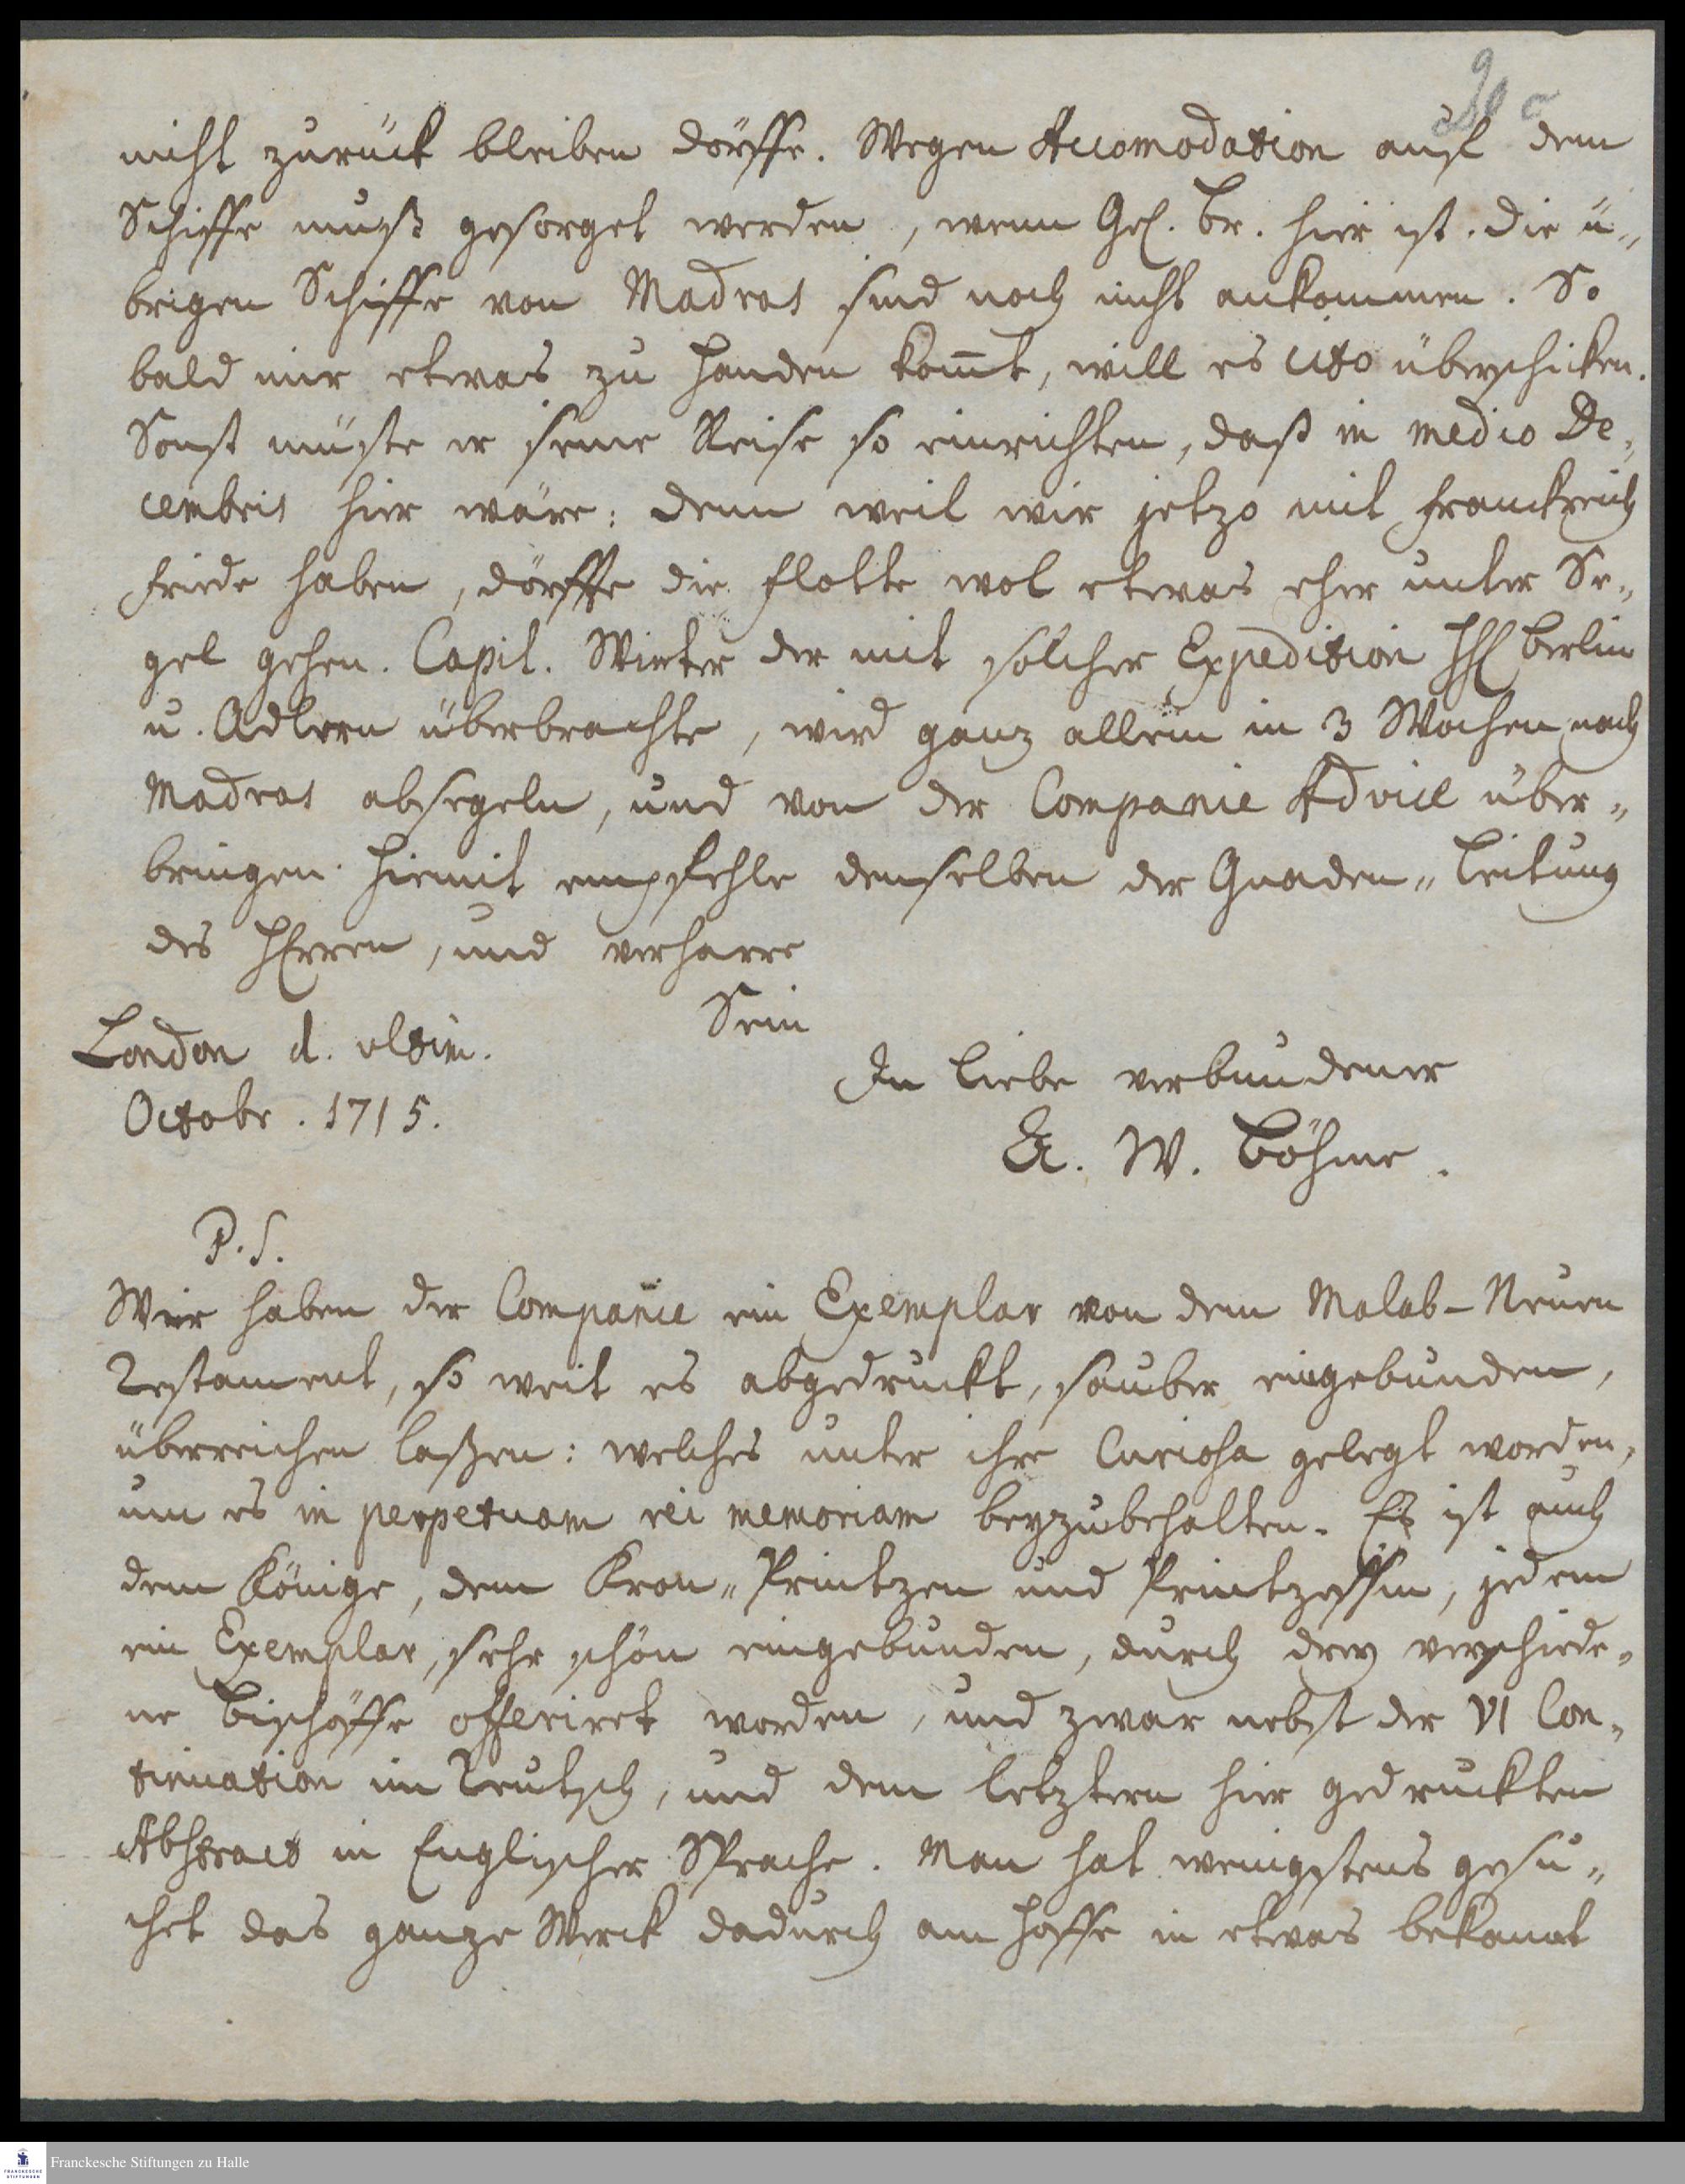 nicht zurück bleiben dörffe. Wegen Accomodation auf dem
Schiffe muß gesorget werden, wenn Gel. Br. hier ist. die ü„
brigen Schiffe von Madras sind noch nicht ankommen. So
bald mir etwas zu Handen kom̅t, will es cito überschicken.
Sonst müste er seine Reise so einrichten, daß in medio De„
cembris hier wäre: denn weil wir jetzo mit Franckreich
Friede haben, dörffte die Flotte wol etwas eher unter Se„
gel gehen. Capit. Winter der mit solcher Expedition HH Berlin
u. Adlern überbrachte, wird ganz allein in 3 Wochen nach
Madras absegeln, und von der Companie Advice über„
bringen. Hiemit empfehle denselben der Gnaden„Leitung
des HErren, und verharre
Sein
London d. ultim.
In Liebe verbundener
Octobr. 1715.
A. W. Böhme.
P.S.
Wir haben der Companie ein Exemplar von dem Malab-Neuen
Testament, so weit es abgedruckt, sauber eingebunden,
überreichen laßen: welches unter ihre Curiosa gelegt worden,
um es in perpetuam rei memoriam beyzubehalten. Es ist auch
dem Könige, dem Kron„Printzen und Printzessin, jedem
ein Exemplar, sehr schön eingebunden, durch drey verschiede„
ne Bischöffe offeriret worden, und zwar nebst der VI Con„
tinuation im Teutsch, und dem letztern hier gedruckten
Abstract in Englischer Sprache. Man hat wenigstens gesu„
chet das ganze Werck dadurch am Hoffe in etwas bekannt
Franckesche Stiftungen zu Halle
FRANCKESCHE
STIFTUNGEN